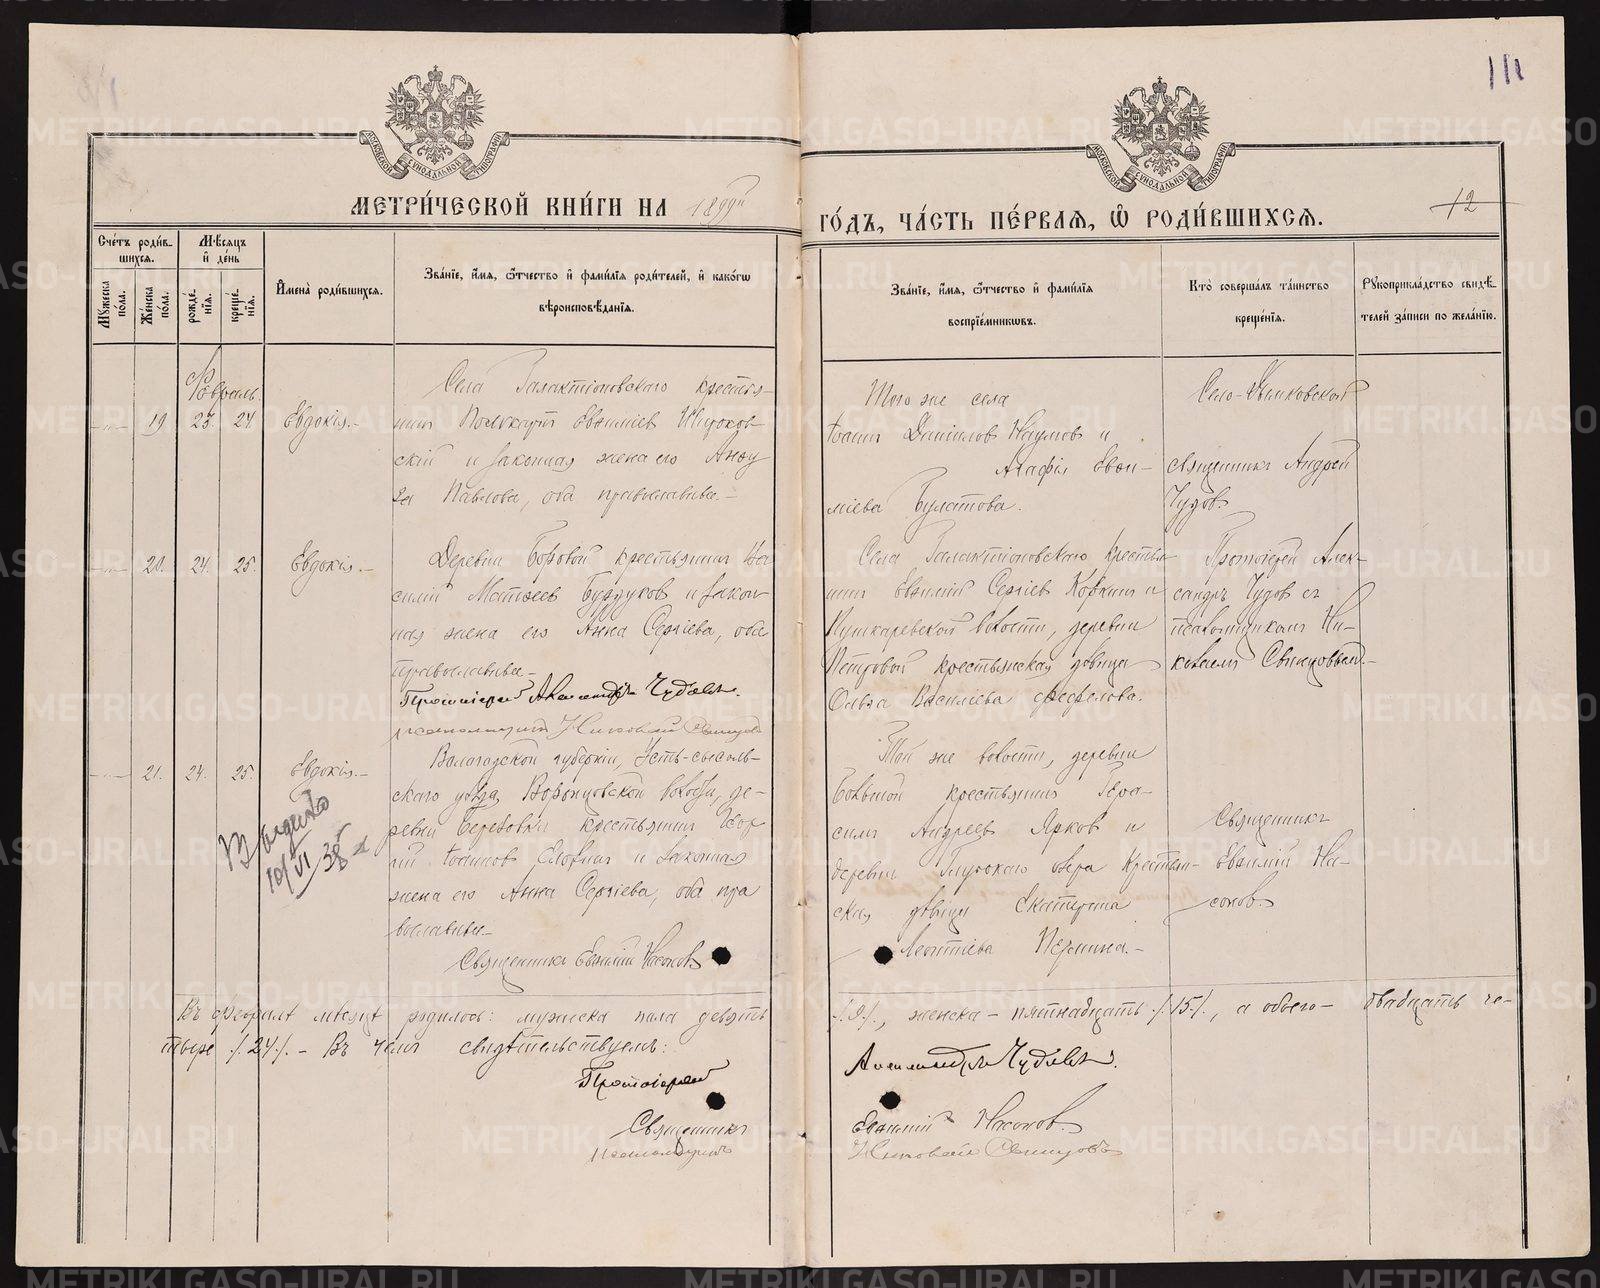 111
МОСКОВСКОЙ СѴНОДАЛЬНОЙ ТИПОГРАФІИ
МОСКОВСКОЙ СѴНОДАЛЬНОЙ ТИПОГРАФІИ
МЕТРИ́ЧЕСКОЙ КНИ́ГИ НА 1899й
ГО́ДЪ, ЧА́СТЬ ПЕ́РВАЯ, Ѡ РОДИ́ВШИХСЯ.
12
Сче́тъ роди́вшихся.
Му́жеска пола.
Же́нска пола.
Мѣсяцъ и де́нь
рожде́нія.
креще́нія.
Имена̀ роди́вшихся.
Зва́ніе, и́мя, ѻ҆́тчество и фами́лія роди́телей, и како́гѡ вѣроисповѣ́данія.
Зва́ніе, и́мя, ѻ҆́тчество и фами́лія воспріе́мникѡвъ.
Кто̀ соверша́лъ та́инство креще́нія.
Рукоприкла́дство свидѣ́телей за́писи по жела́нію.
Февраль.
19 23. 24. Евдокія.
Села Галактіоновскаго крестья-
нинъ Поликарпъ Евѳиміев Широков-
скій и законная жена его
Павлова, оба православные.
Того же села
Іоаннъ Даніилов Наумов и
Агафія Евѳи-
міева Булатова.
священникъ Андрей
Чудов.
20. 24. 25. Евдокія.
Деревни Боровой крестьянинъ Ва
силій Матѳеев Бурдуков и закон
ная жена его Анна Сергіева, оба
православные.
Протоіерей Александръ Чудовъ.
псаломщикъ Николай Свинцовъ
Села Галактіоновскаго крестья-
нинъ Евѳимій Сергіев Коркин и
Пушкаревской волости, деревни
Петровой крестьянская девица
Ольга Василіева Фефелова.
Протоіерей Алек-
сандръ Чудов съ
псаломщикомъ Ни-
колаемъ Свинцовым.
21. 24. 25. Евдокія.
Вологодской губерніи, Усть-сысоль-
скаго уѣзда, Воронцовской волости, де-
ревни Березовки крестьянинъ
Іоаннов и законная
жена его Анна Сергіева, оба пра
вославные.
Священникъ Евѳимій Насонов
10/VI 38
Той же волости, деревни
Большой крестьянинъ Гера-
симъ Андреев Ярков и
деревни Глубокаго озера крестьян-
ская девица Екатерина
Леонтіева Пермина.
Священникъ
Евѳимій На-
сонов.
Въ Февралѣ мѣсяцѣ родилось: мужеска пола девять
/.9./., женска - пятнадцать ./.15./., а обоего - двадцать че-
тыре ./.24./. - Въ чемъ свидѣтельствуемъ:
Протоіерей Александръ Чудовъ.
Священникъ Евѳимій Насонов.
псаломщикъ Николай Свинцовъ
METRIKI.GASO-URAL.RU